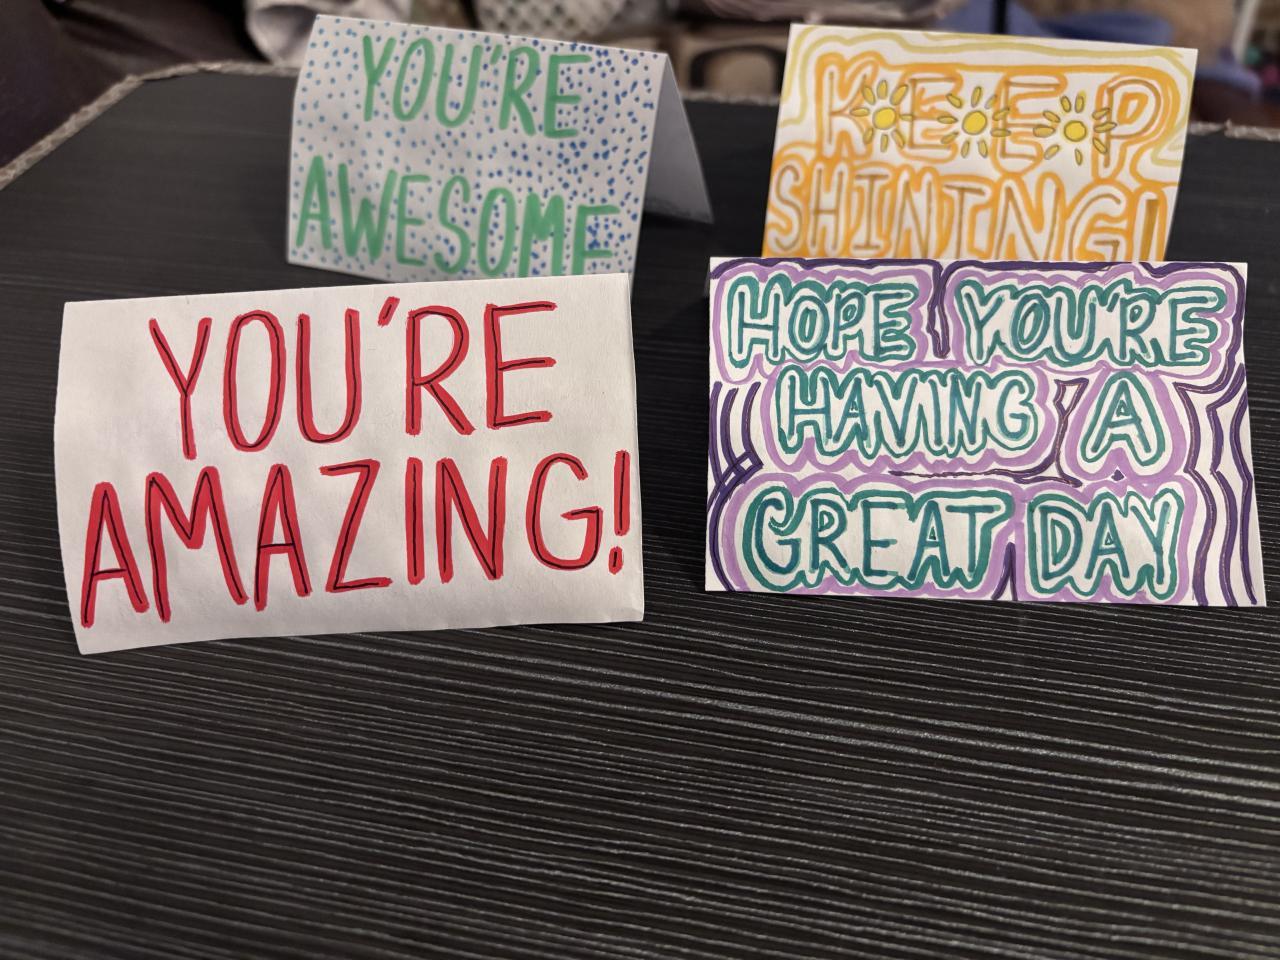 YOU'RE
AWESOME
KEEP
SHINING!
YOU'RE
AMAZING!
HOPE YOU'RE
HAVING A
GREAT DAY